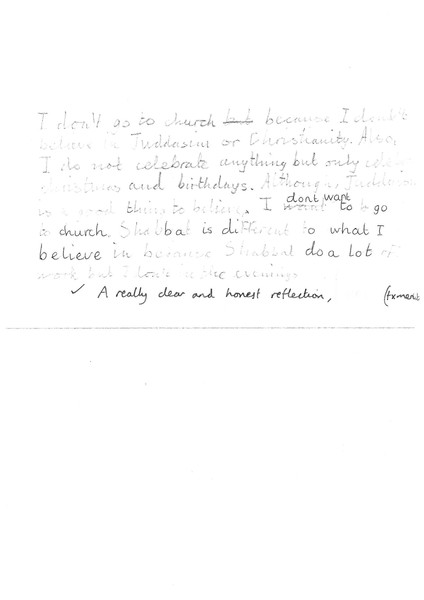 I don't go to church but because I don't
believe in Juddasim or Christianity. Also,
I do not celebrate anything but only
christmas and birthdays. Although, Juddasim
is a good thing to believe, I dont want to go
to church. Shabbat is different to what I
believe in because Shabbat do a lot of
work but I don't in the evenings
✓ A really clear and honest reflection,